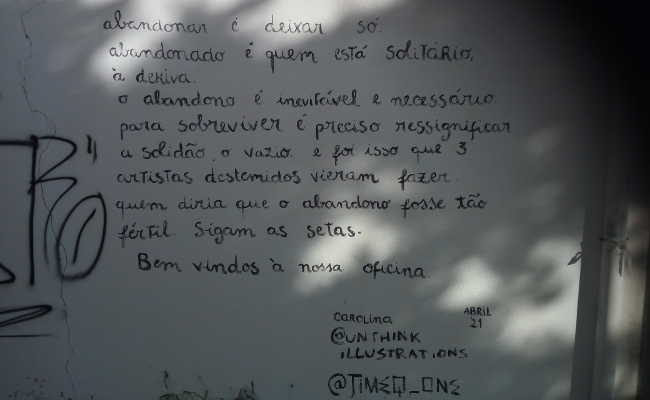 abandonar é deixar só.
abandonado é quem está solitário,
à deriva.
o abandono é inevitável e necessário.
para sobreviver é preciso ressignificar
a solidão, o vazio. e foi isso que 3
artistas destemidos vieram fazer.
quem diria que o abandono fosse tão
fértil. Sigam as setas.
Bem vindos à nossa oficina.
CAROLINA
ABRIL
21
@UNTHINK
ILLUSTRATIONS
@TIMEQ_ONE